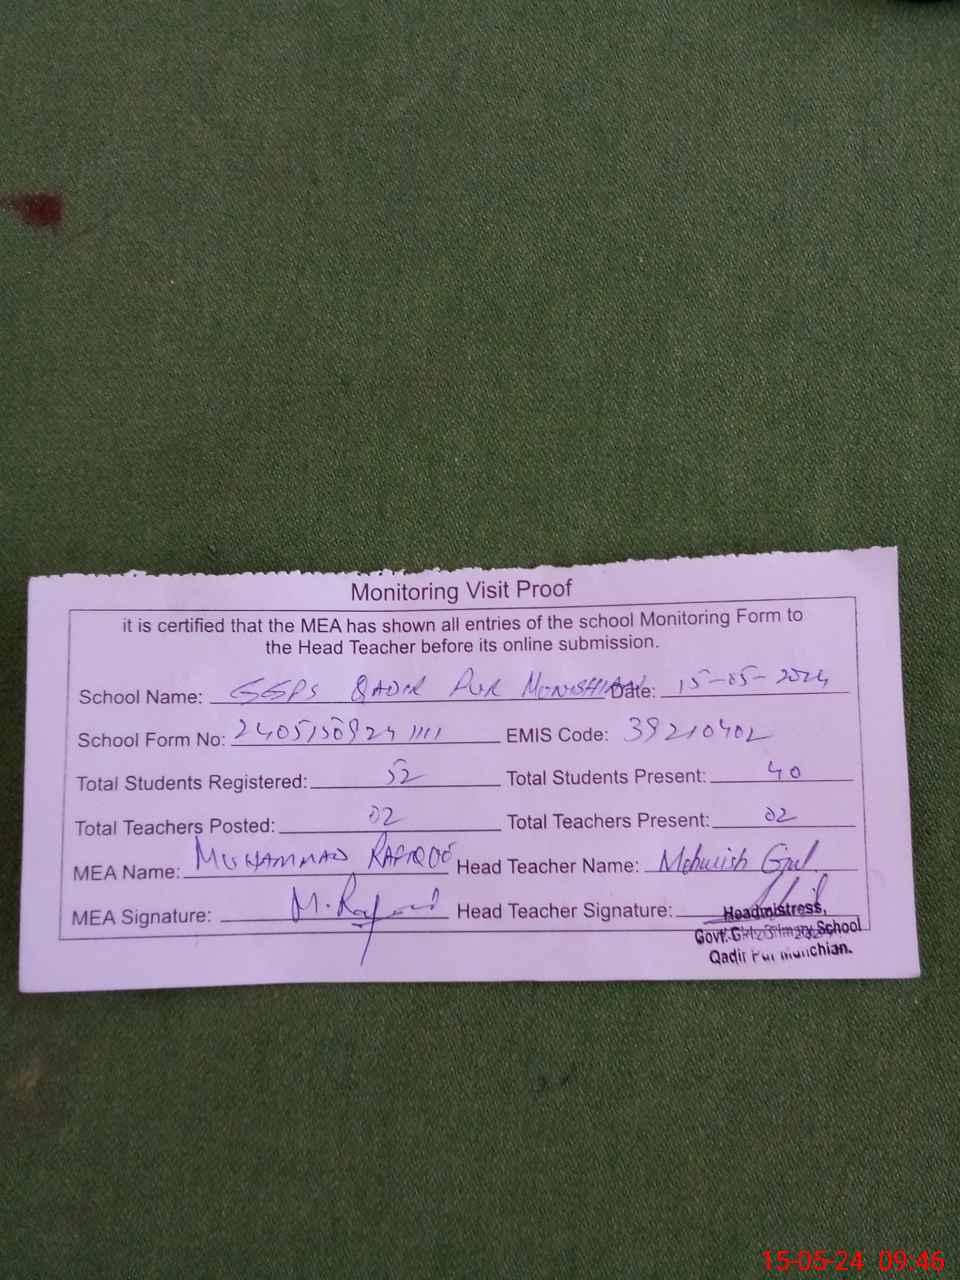 Monitoring Visit Proof
it is certified that the MEA has shown all entries of the school Monitoring Form to
the Head Teacher before its online submission.
School Name: GGPS QADIR PUR Date: 15-05-2024
School Form No: EMIS Code: 39210402
Total Students Registered: 52 Total Students Present: 40
Total Teachers Posted: 02 Total Teachers Present: 02
MEA Name: MUHAMMAD RAFIQUE Head Teacher Name: Mehwish Gul
MEA Signature: Head Teacher Signature:
Headmistress,
Govt. Girls Primary School
Qadir Pur Munchian.
15-05-24 09:46